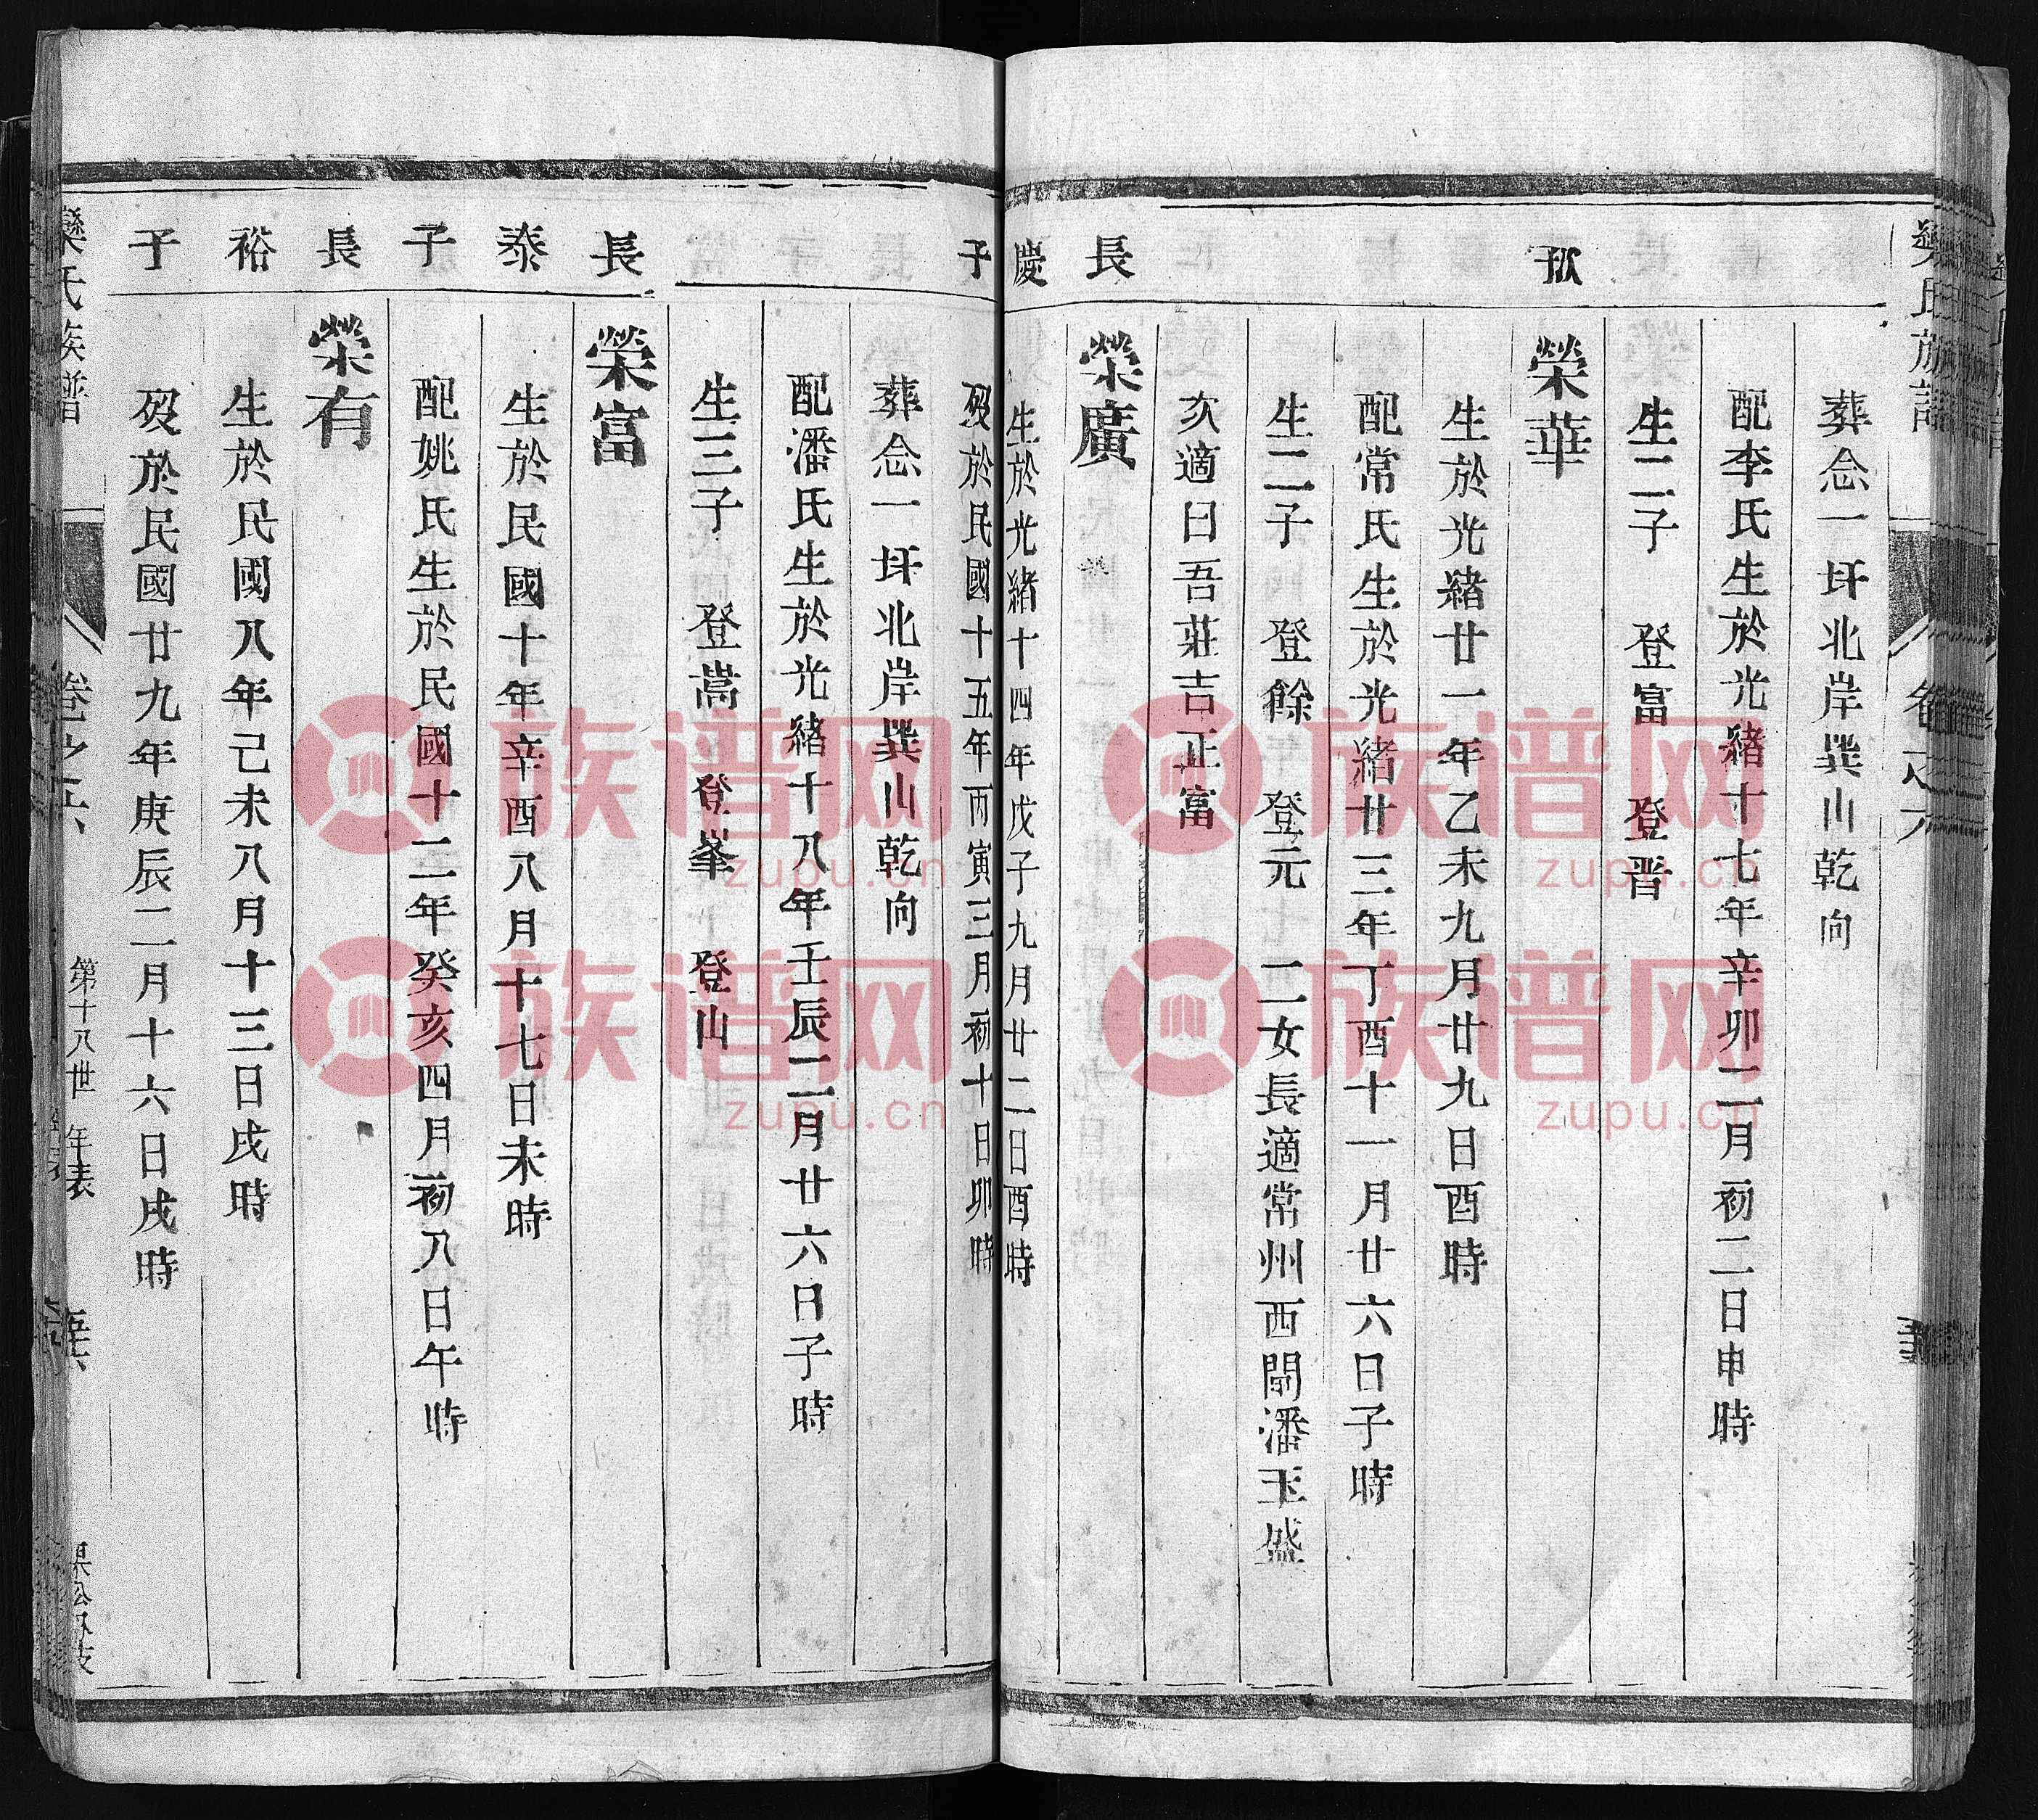 葬念一圩北岸巽山乾向
配李氏生於光緒十七年辛卯二月初二日申時
生二子 登富 登晋
㧾
榮華
生於光緒廿一年乙未九月廿九日酉時
配常氏生於光緒廿三年丁酉十一月廿六日子時
生二子 登餘 登元 二女長適常州西閘潘玉盛
次適日吾莊吉正富
長
榮廣
慶
生於光緒十四年戊子九月廿二日酉時
子
殁於民國十五年丙寅三月初十日卯時
葬念一圩北岸巽山乾向
配潘氏生於光緒十八年壬辰二月廿六日子時
生三子 登嵩 登峯 登山
長
榮富
泰
生於民國十年辛酉八月十七日未時
子
配姚氏生於民國十二年癸亥四月初八日午時
長
榮有
裕
生於民國八年己未八月十三日戌時
子
殁於民國廿九年庚辰二月十六日戌時
氏族譜
卷之六
第十八世 年表
族谱网
zupu.cn
族谱网
zupu.cn
族谱网
zupu.cn
族谱网
zupu.cn